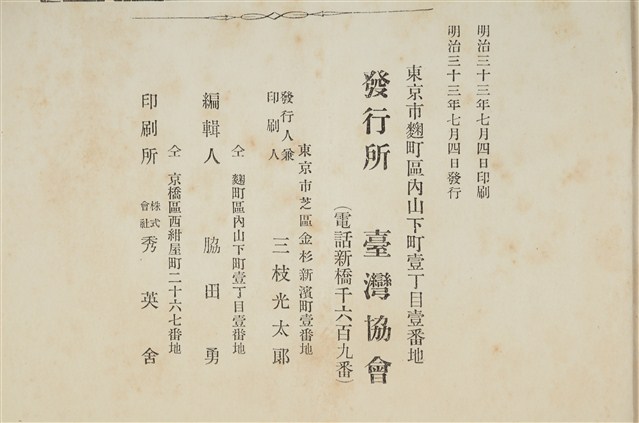 明治三十三年七月四日印刷
明治三十三年七月四日發行
東京市麴町區內山下町壹丁目壹番地
發行所　臺灣協會
（電話新橋千六百九番）
東京市芝區金杉新濱町壹番地
發行人兼印刷人　三枝光太郞
仝　麴町區內山下町壹丁目壹番地
編輯人　脇田勇
仝　京橋區西紺屋町二十六七番地
印刷所　株式會社　秀英舍